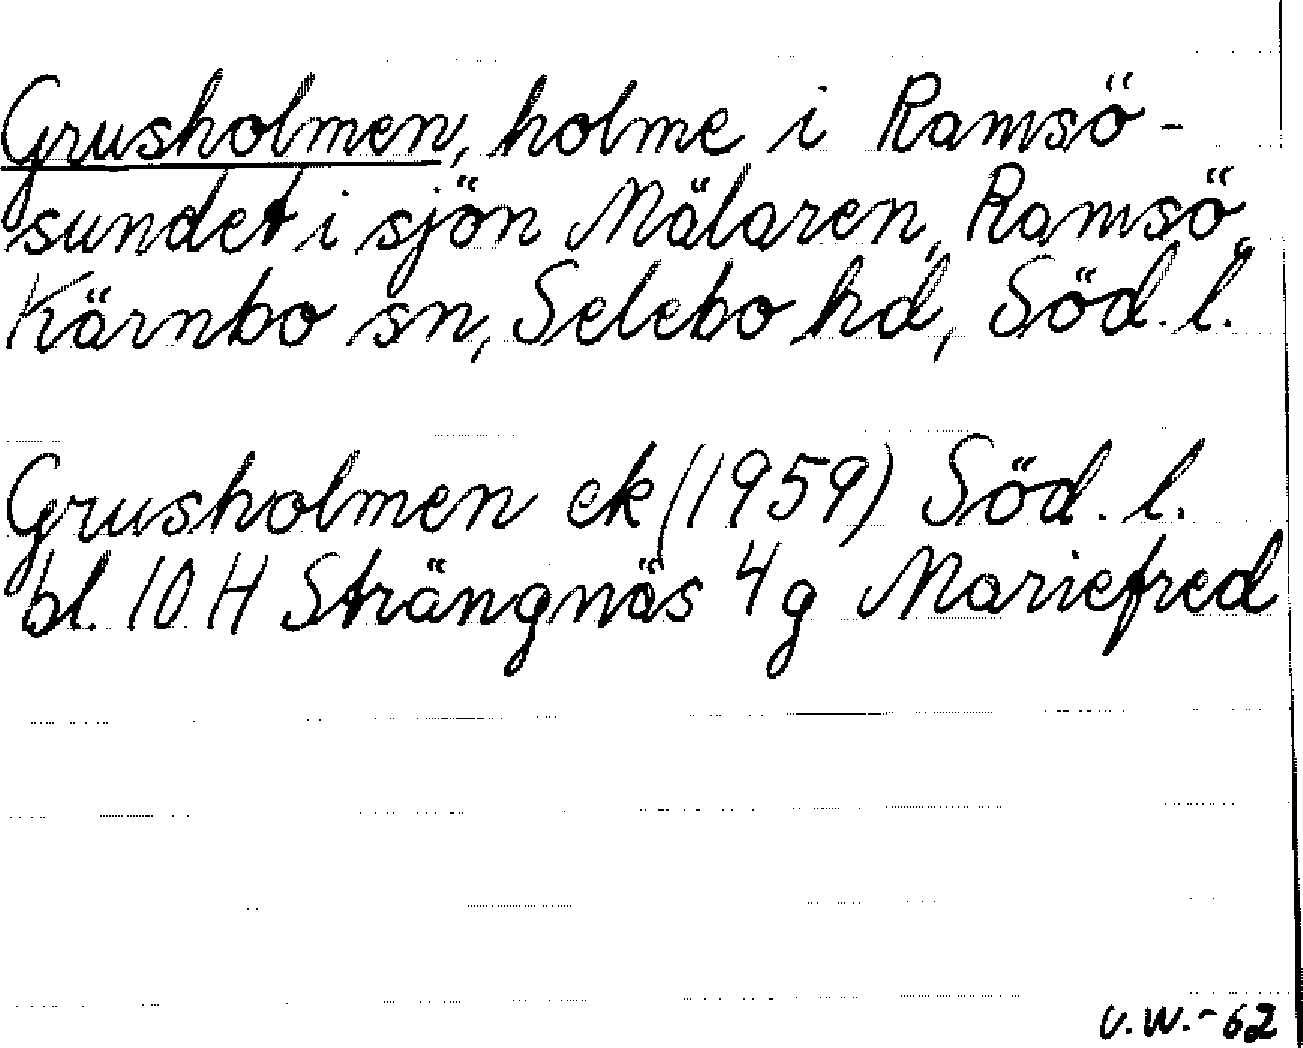 Grusholmen, holme i Ramsö-
sundet i sjön Mälaren, Ramsö,
Kärnbo sn, Selebo hd, Söd. l.
Grusholmen ek (1959) Söd. l.
bl. 10 H Strängnäs 4 g Mariefred
U.W.-62